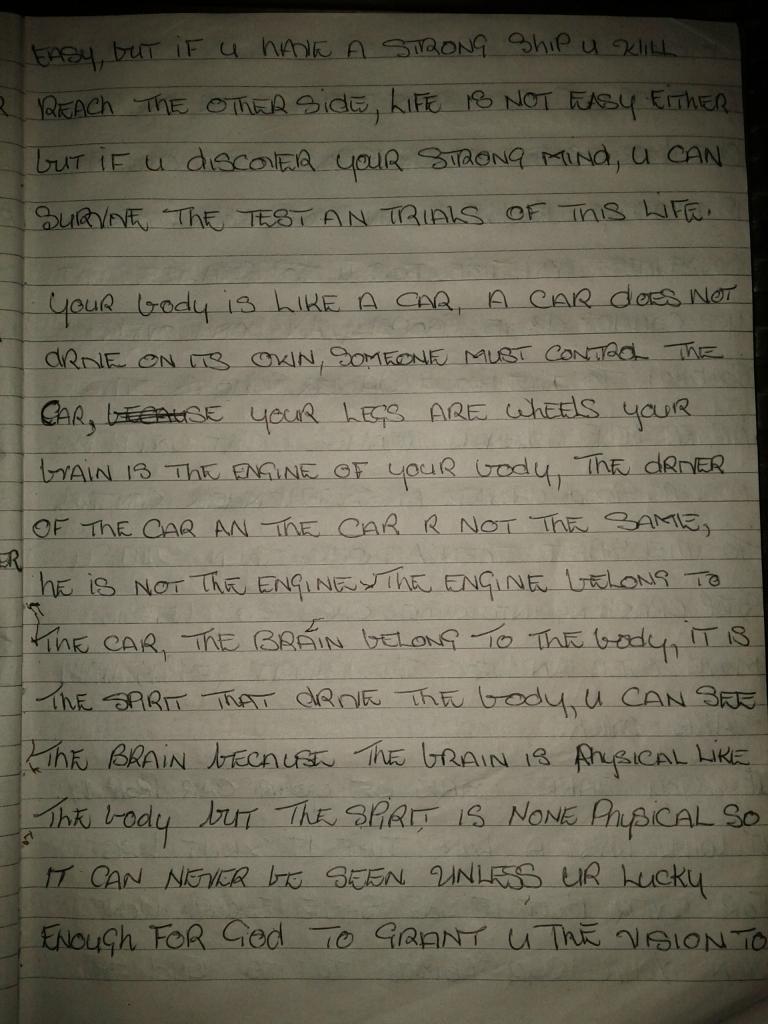 EASY, BUT IF U HAVE A STRONG SHIP U WILL
REACH THE OTHER SIDE, LIFE IS NOT EASY EITHER
BUT IF U DISCOVER YOUR STRONG MIND, U CAN
SURVIVE THE TEST AN TRIALS OF THIS LIFE.
YOUR BODY IS LIKE A CAR, A CAR DOES NOT
DRIVE ON ITS OWN, SOMEONE MUST CONTROL THE
CAR, BECAUSE YOUR LEGS ARE WHEELS YOUR
BRAIN IS THE ENGINE OF YOUR BODY, THE DRIVER
OF THE CAR AN THE CAR R NOT THE SAME,
HE IS NOT THE ENGINE, THE ENGINE BELONG TO
THE CAR, THE BRAIN BELONG TO THE BODY, IT IS
THE SPIRIT THAT DRIVE THE BODY, U CAN SEE
THE BRAIN BECAUSE THE BRAIN IS PHYSICAL LIKE
THE BODY BUT THE SPIRIT IS NONE PHYSICAL SO
IT CAN NEVER BE SEEN UNLESS UR LUCKY
ENOUGH FOR GOD TO GRANT U THE VISION TO